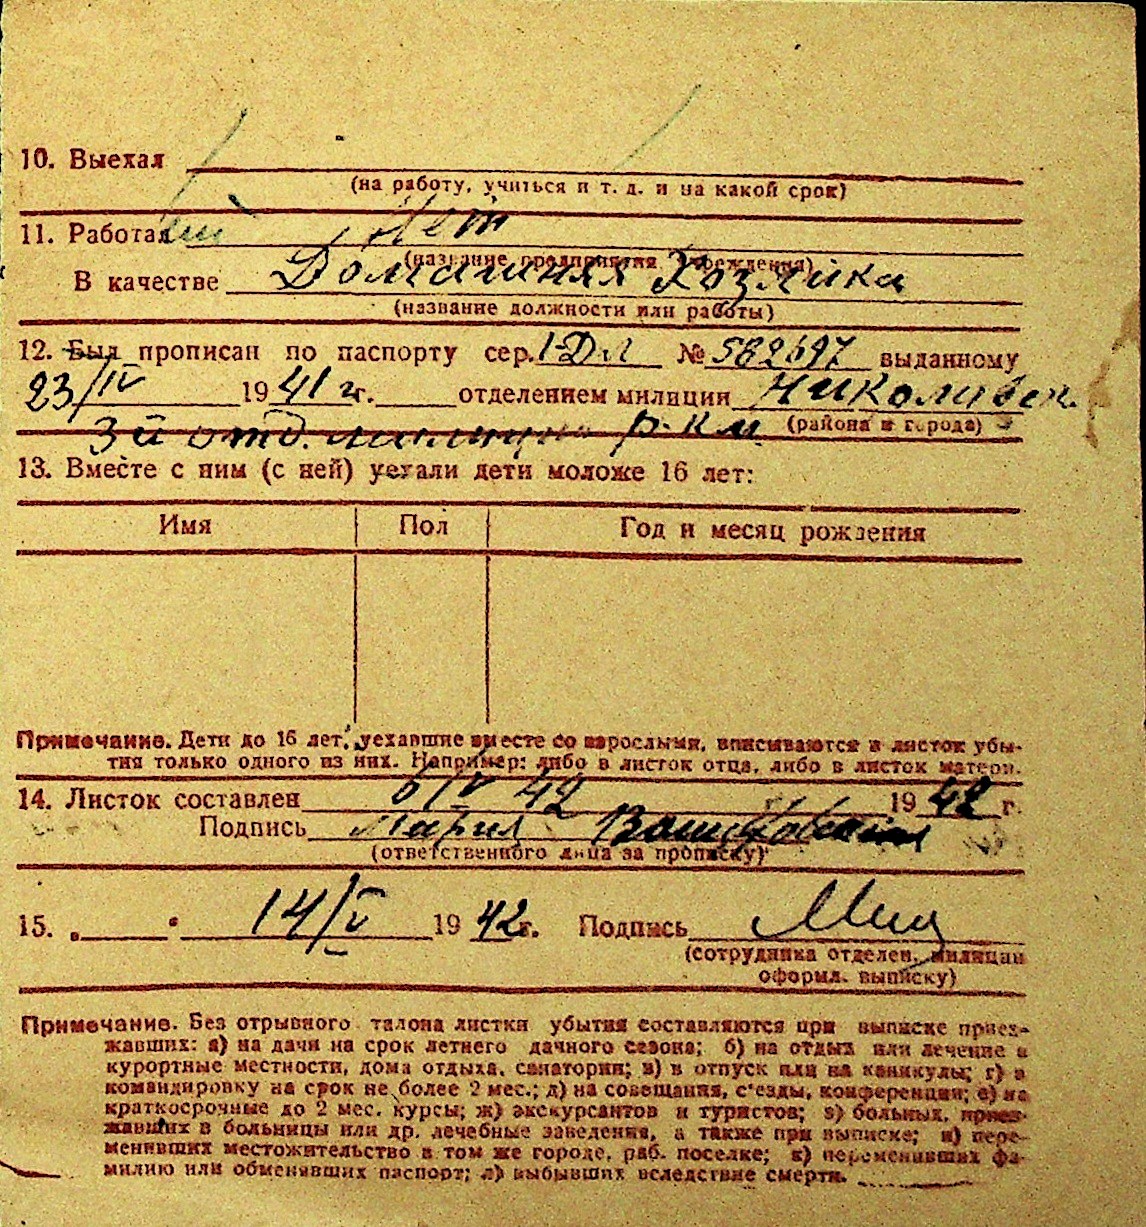 10. Выехал
(на работу, учиться и т. д. и на какой срок)
11. Работал Нет
(название предприятия, учреждения)
В качестве Домашняя Хозяйка
(название должности или работы)
12. Был прописан по паспорту сер. I-ДЛ № 582697 выданному
23/IV 1941 г. отделением милиции Николаевск.
3й отд. милиции р.к.м. (района и города)
13. Вместе с ним (с ней) уехали дети моложе 16 лет:
Имя Пол Год и месяц рождения
Примечание. Дети до 16 лет, уехавшие вместе со взрослыми, вписываются в листок убы-
тия только одного из них. Например: либо в листок отца, либо в листок матери.
14. Листок составлен 6/V 42 1942 г.
Подпись Мария
(ответственного лица за прописку)
15. „ “ 14/V 1942 г. Подпись
(сотрудника отделен. милиции
оформл. выписку)
Примечание. Без отрывного талона листки убытия составляются при выписке приез-
жавших: а) на дачи на срок летнего дачного сезона; б) на отдых или лечение в
курортные местности, дома отдыха, санатории; в) в отпуск или на каникулы; г) в
командировку на срок не более 2 мес.; д) на совещания, с'езды, конференции; е) на
краткосрочные до 2 мес. курсы; ж) экскурсантов и туристов; з) больных, приез-
жавших в больницы или др. лечебные заведения, а также при выписке; и) пере-
менивших местожительство в том же городе, раб. поселке; к) переменивших фа-
милию или обменявших паспорт; л) выбывших вследствие смерти.